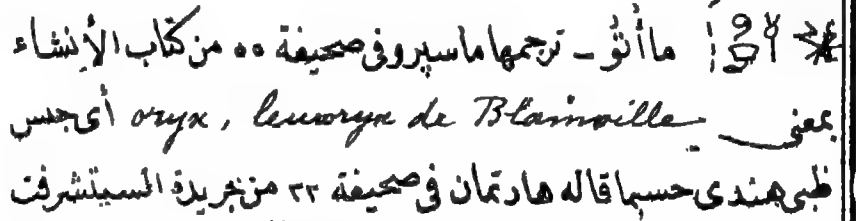 ماأُتوُ ـ ترجمها ماسپرو فى صحيفة ٥٥ من كتاب الأنشاء
بمعنى oryx, leucoryx de Blainville أى جنس
ظبى هندى حسبما قاله هارتمان فى صحيفة ٢٢ من جريدة السيتشرفت